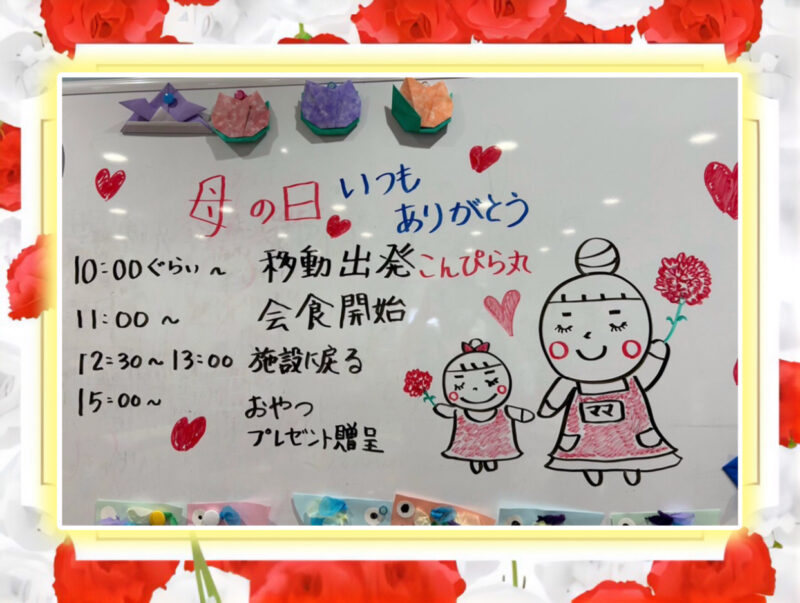 母の日 いつも
ありがとう
10:00ぐらい〜 移動出発こんぴら丸
11:00 〜 会食開始
12:30〜13:00 施設に戻る
15:00〜 おやつ
プレゼント贈呈
ママ